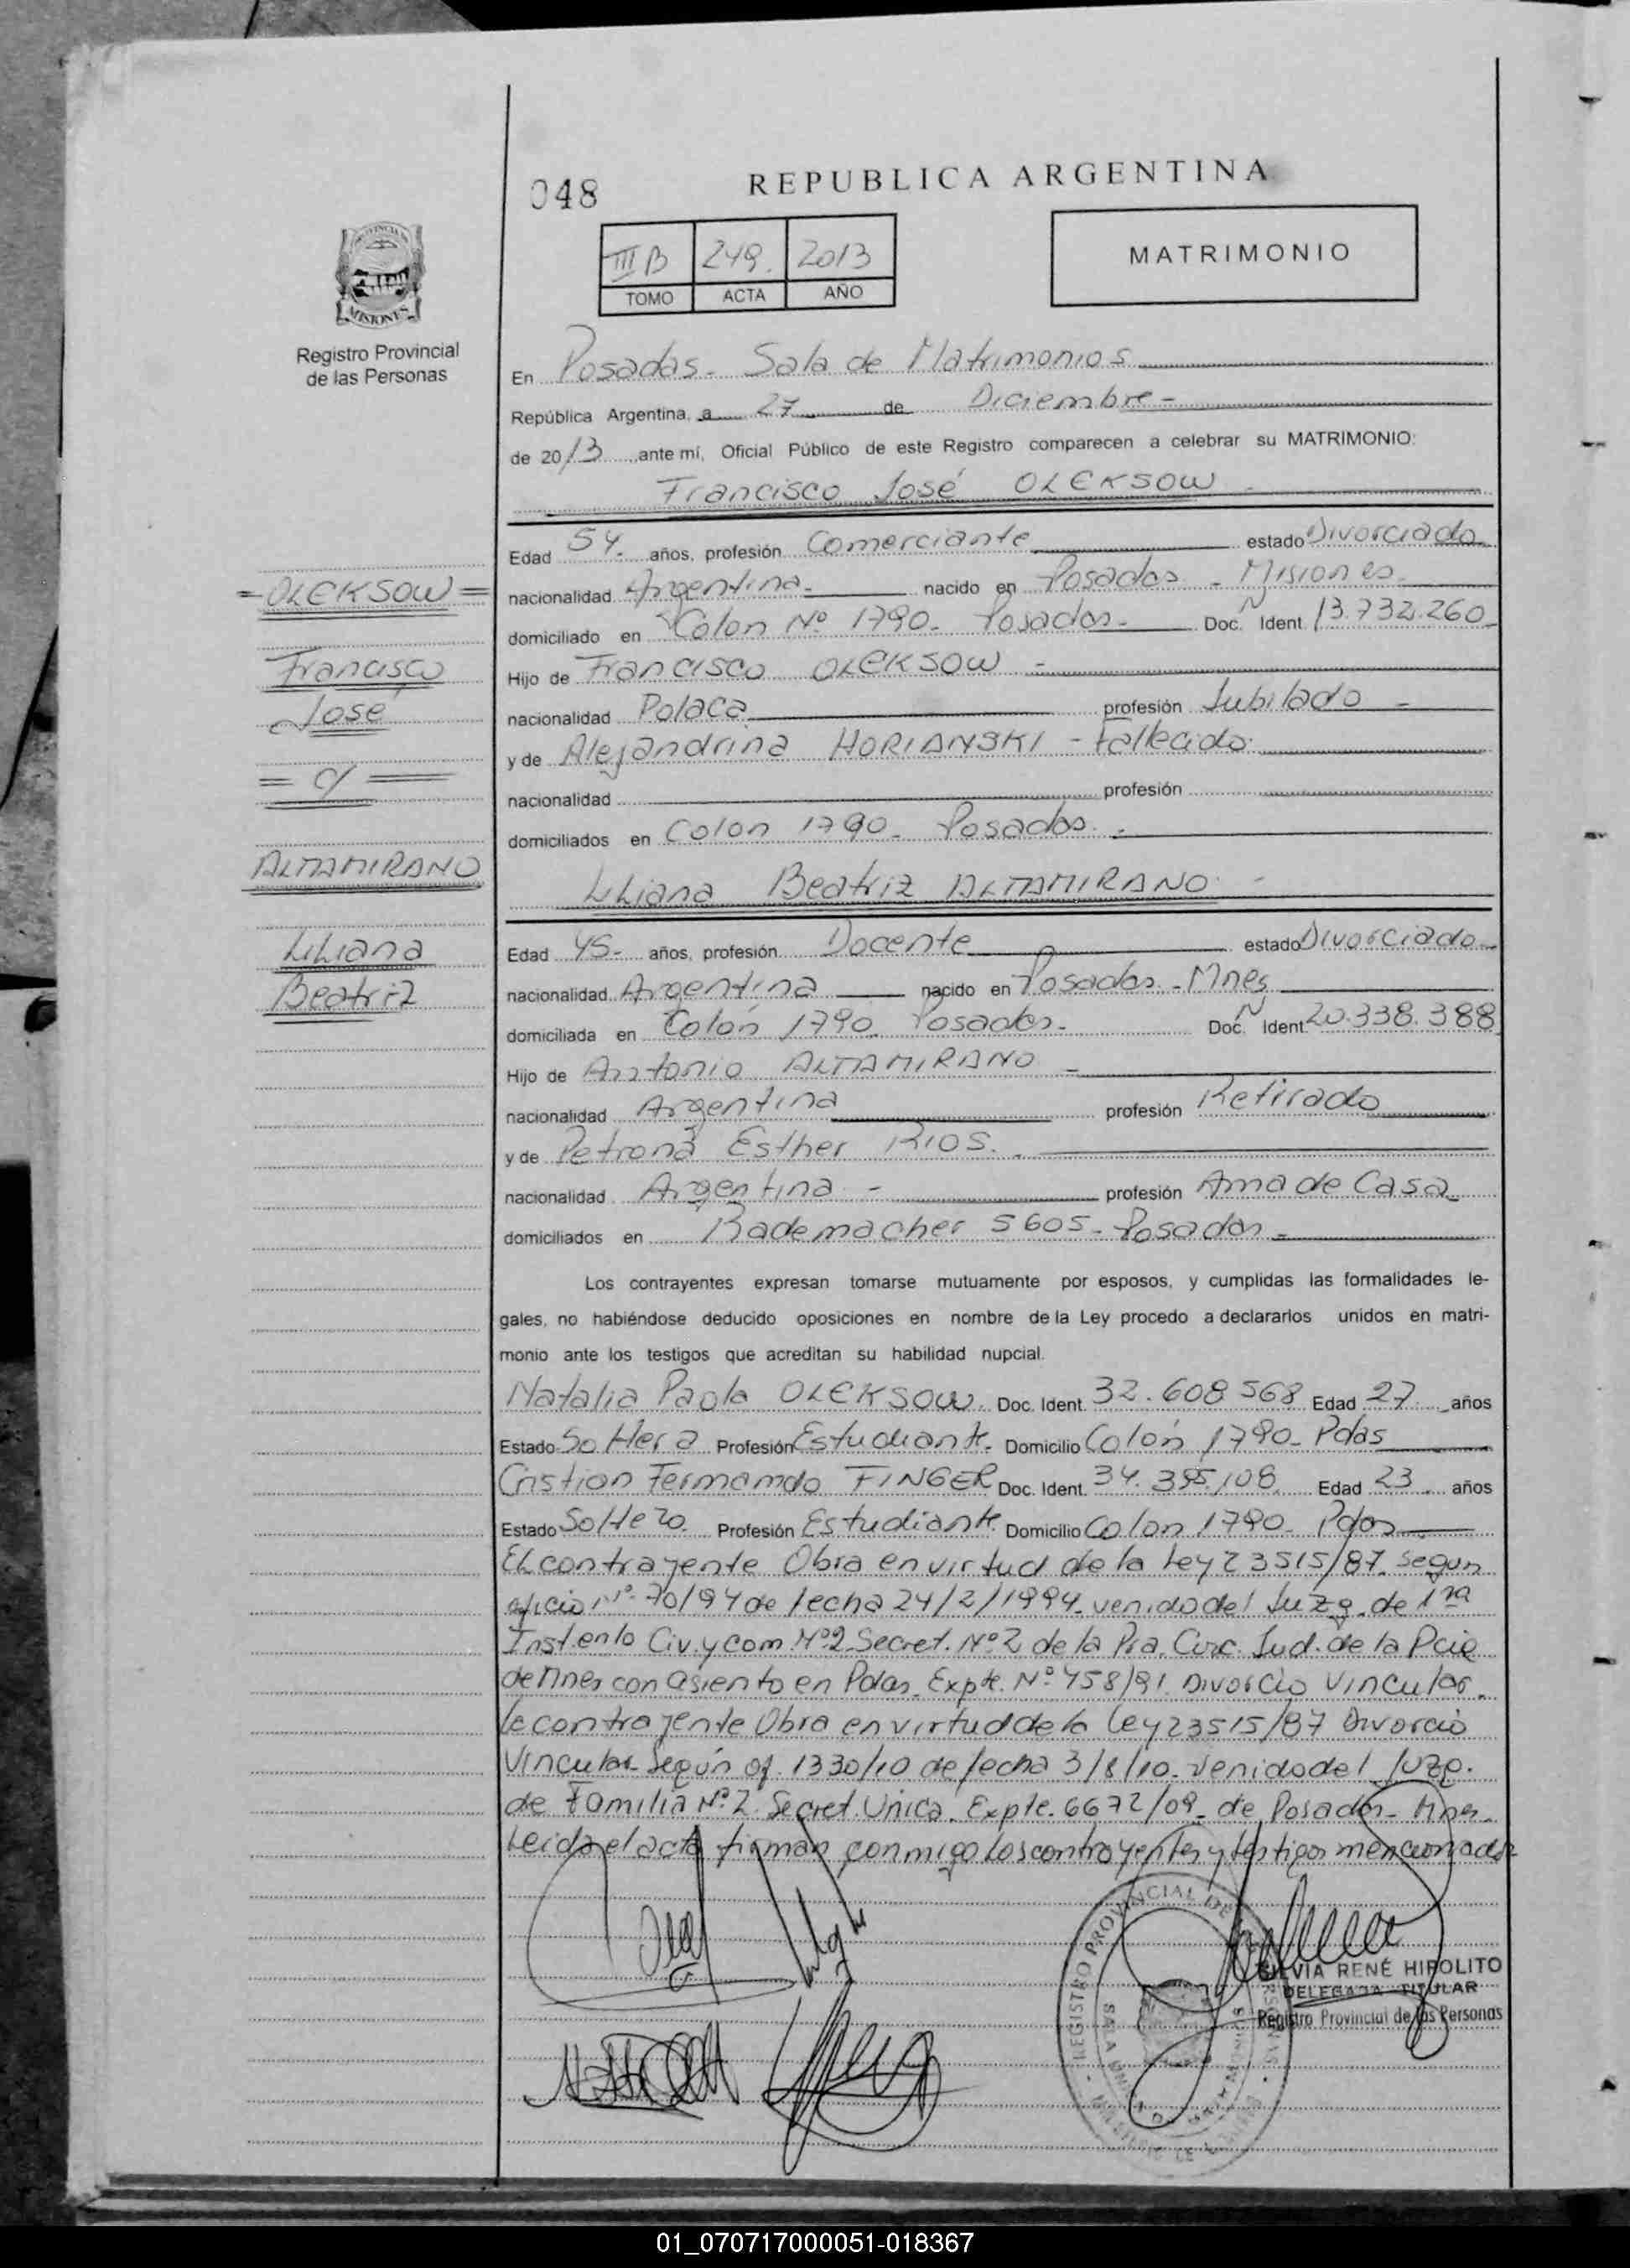 048
REPUBLICA ARGENTINA
III B 249. 2013
TOMO ACTA AÑO
MATRIMONIO
PROVINCIA DE
MISIONES
Registro Provincial
de las Personas
En Posadas - Sala de Matrimonios
República Argentina, a 27 de Diciembre -
de 2013 ante mí, Oficial Público de este Registro comparecen a celebrar su MATRIMONIO:
Francisco José OLEKSOW -
Edad 54. años, profesión Comerciante estado Divorciado
nacionalidad Argentina - nacido en Posadas - Misiones
domiciliado en Colon Nº 1790 - Posadas - Doc. Ident. N 13.732.260
Hijo de Francisco OLEKSOW -
nacionalidad Polaca profesión Jubilado -
y de Alejandrina HORIANSKI - Fallecido.
nacionalidad profesión
domiciliados en Colon 1790 - Posadas. -
Liliana Beatriz ALTAMIRANO -
Edad 45 - años, profesión Docente estado Divorciado
nacionalidad Argentina nacido en Posadas - Mnes
domiciliada en Colón 1790 Posadas - Doc. Ident. N 20.338.388
Hijo de Antonio ALTAMIRANO -
nacionalidad Argentina profesión Retirado
y de Petrona Esther RIOS. -
nacionalidad Argentina - profesión Ama de Casa
domiciliados en Rademacher 5605 - Posadas -
Los contrayentes expresan tomarse mutuamente por esposos, y cumplidas las formalidades le-
gales, no habiéndose deducido oposiciones en nombre de la Ley procedo a declararlos unidos en matri-
monio ante los testigos que acreditan su habilidad nupcial.
Natalia Paola OLEKSOW. Doc. Ident. 32.608.568 Edad 27 años
Estado Soltera Profesión Estudiante. Domicilio Colón 1790 - Pdas
Cristian Fernando FINGER Doc. Ident. 34.395.108 Edad 23 años
Estado Soltero. Profesión Estudiante Domicilio Colon 1790 - Pdas
El contrayente Obra en virtud de la Ley 23515/87. segun
oficio nº 70/94 de fecha 24/2/1994 - venido del Juzg. de 1ra
Inst. en lo Civ. y Com. Nº 2 Secret. Nº 2 de la Pra. Circ. Jud. de la Pcia
de Mnes con asiento en Pdas. Expte. Nº 458/91 Divorcio Vincular.
la contrayente Obra en virtud de la Ley 23515/87 Divorcio
Vincular Según of. 1330/10 de fecha 3/8/10. venido del Juzg.
de Familia Nº 2. Secret. Unica. Expte. 6672/09 - de Posadas - Mnes.
Leido el acta firman conmigo los contrayentes y testigos mencionados
= OLEKSOW =
Francisco
José
= c/ =
ALTAMIRANO
Liliana
Beatriz
REGISTRO PROVINCIAL DE
SILVIA RENÉ HIPOLITO
DELEGADA TITULAR
Registro Provincial de las Personas
01_070717000051-018367